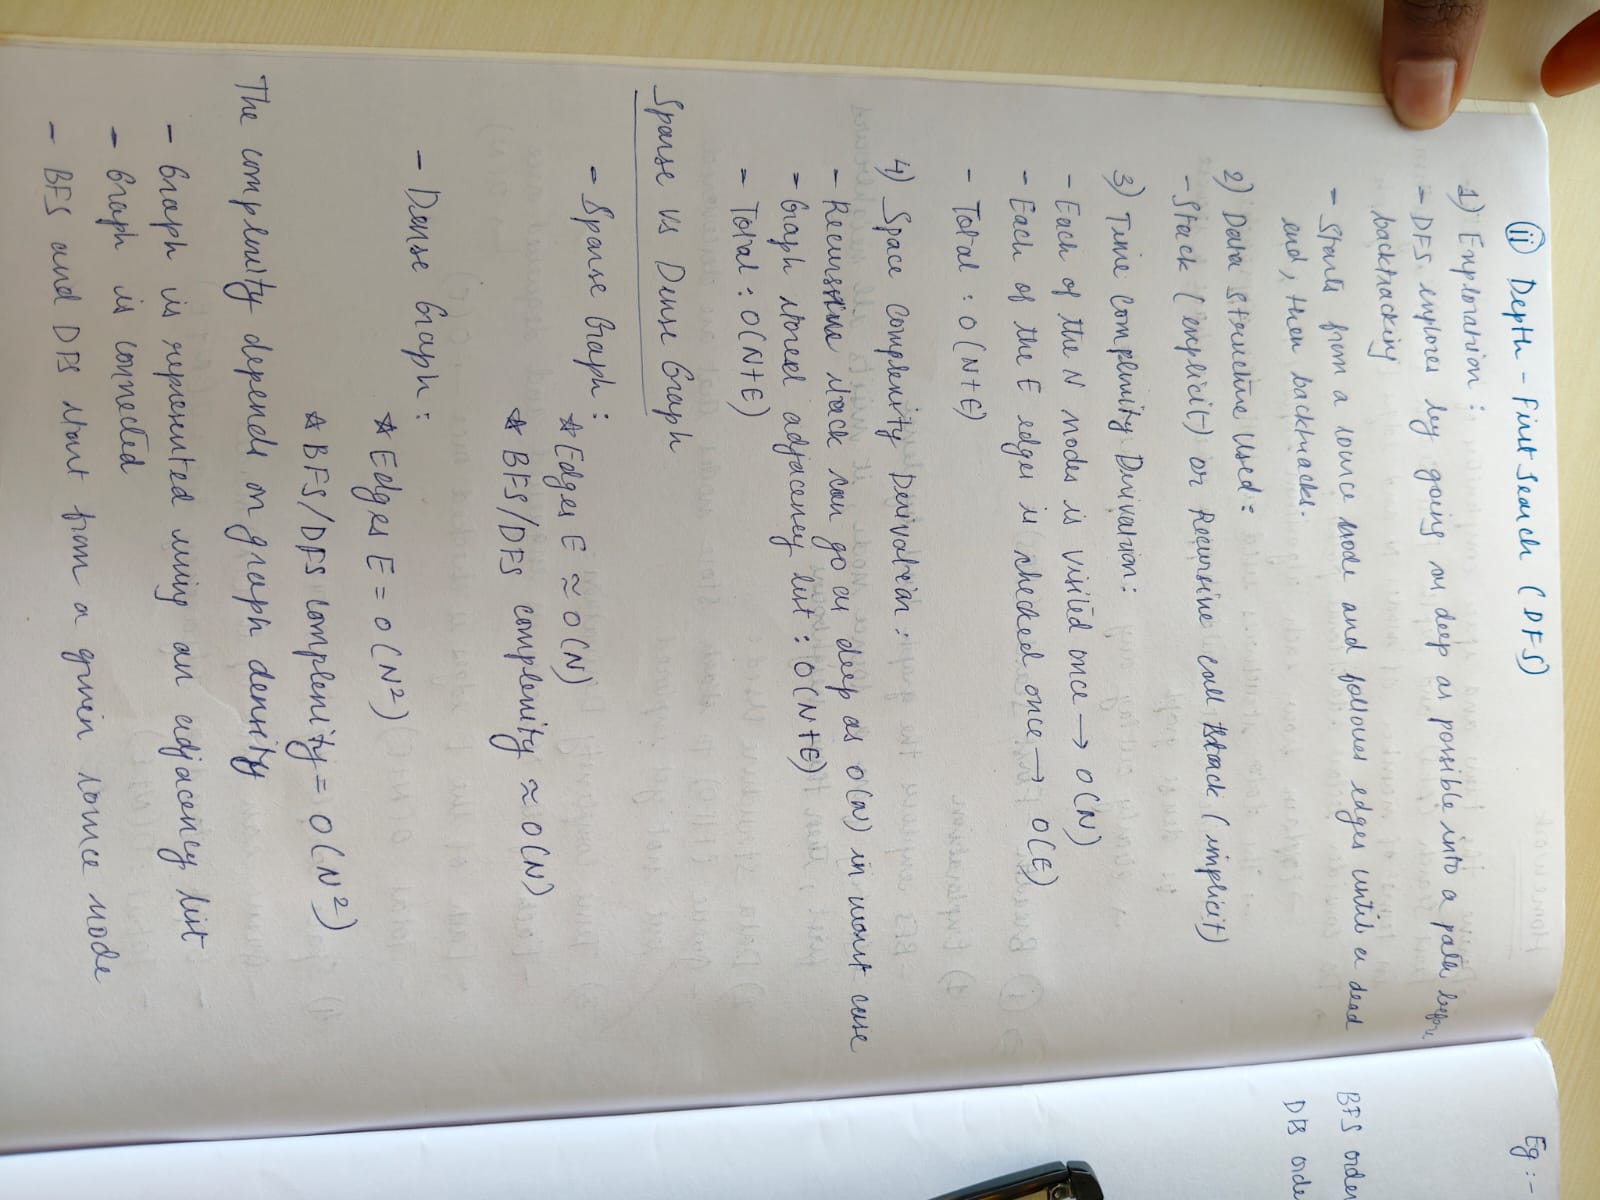 (ii) Depth - First Search (DFS)
1) Exploration :
- DFS explores by going as deep as possible into a path before
backtracking
- Starts from a source node and follows edges until a dead
end, then backtracks.
2) Data Structure Used :
- Stack (explicit) or Recursive call stack (implicit)
3) Time Complexity Derivation :
- Each of the N nodes is visited once → O(N)
- Each of the E edges is checked once → O(E)
- Total : O(N+E)
4) Space Complexity Derivation :
- Recursive stack can go as deep as O(N) in worst case
- Graph stored adjacency list : O(N+E)
- Total : O(N+E)
Sparse vs Dense Graph
- Sparse Graph :
* Edges E ≈ O(N)
* BFS/DFS complexity ≈ O(N)
- Dense Graph :
* Edges E = O(N²)
* BFS/DFS complexity = O(N²)
The complexity depends on graph density
- Graph is represented using an adjacency list
- Graph is connected
- BFS and DFS start from a given source node
Eg :-
BFS order
DFS orde